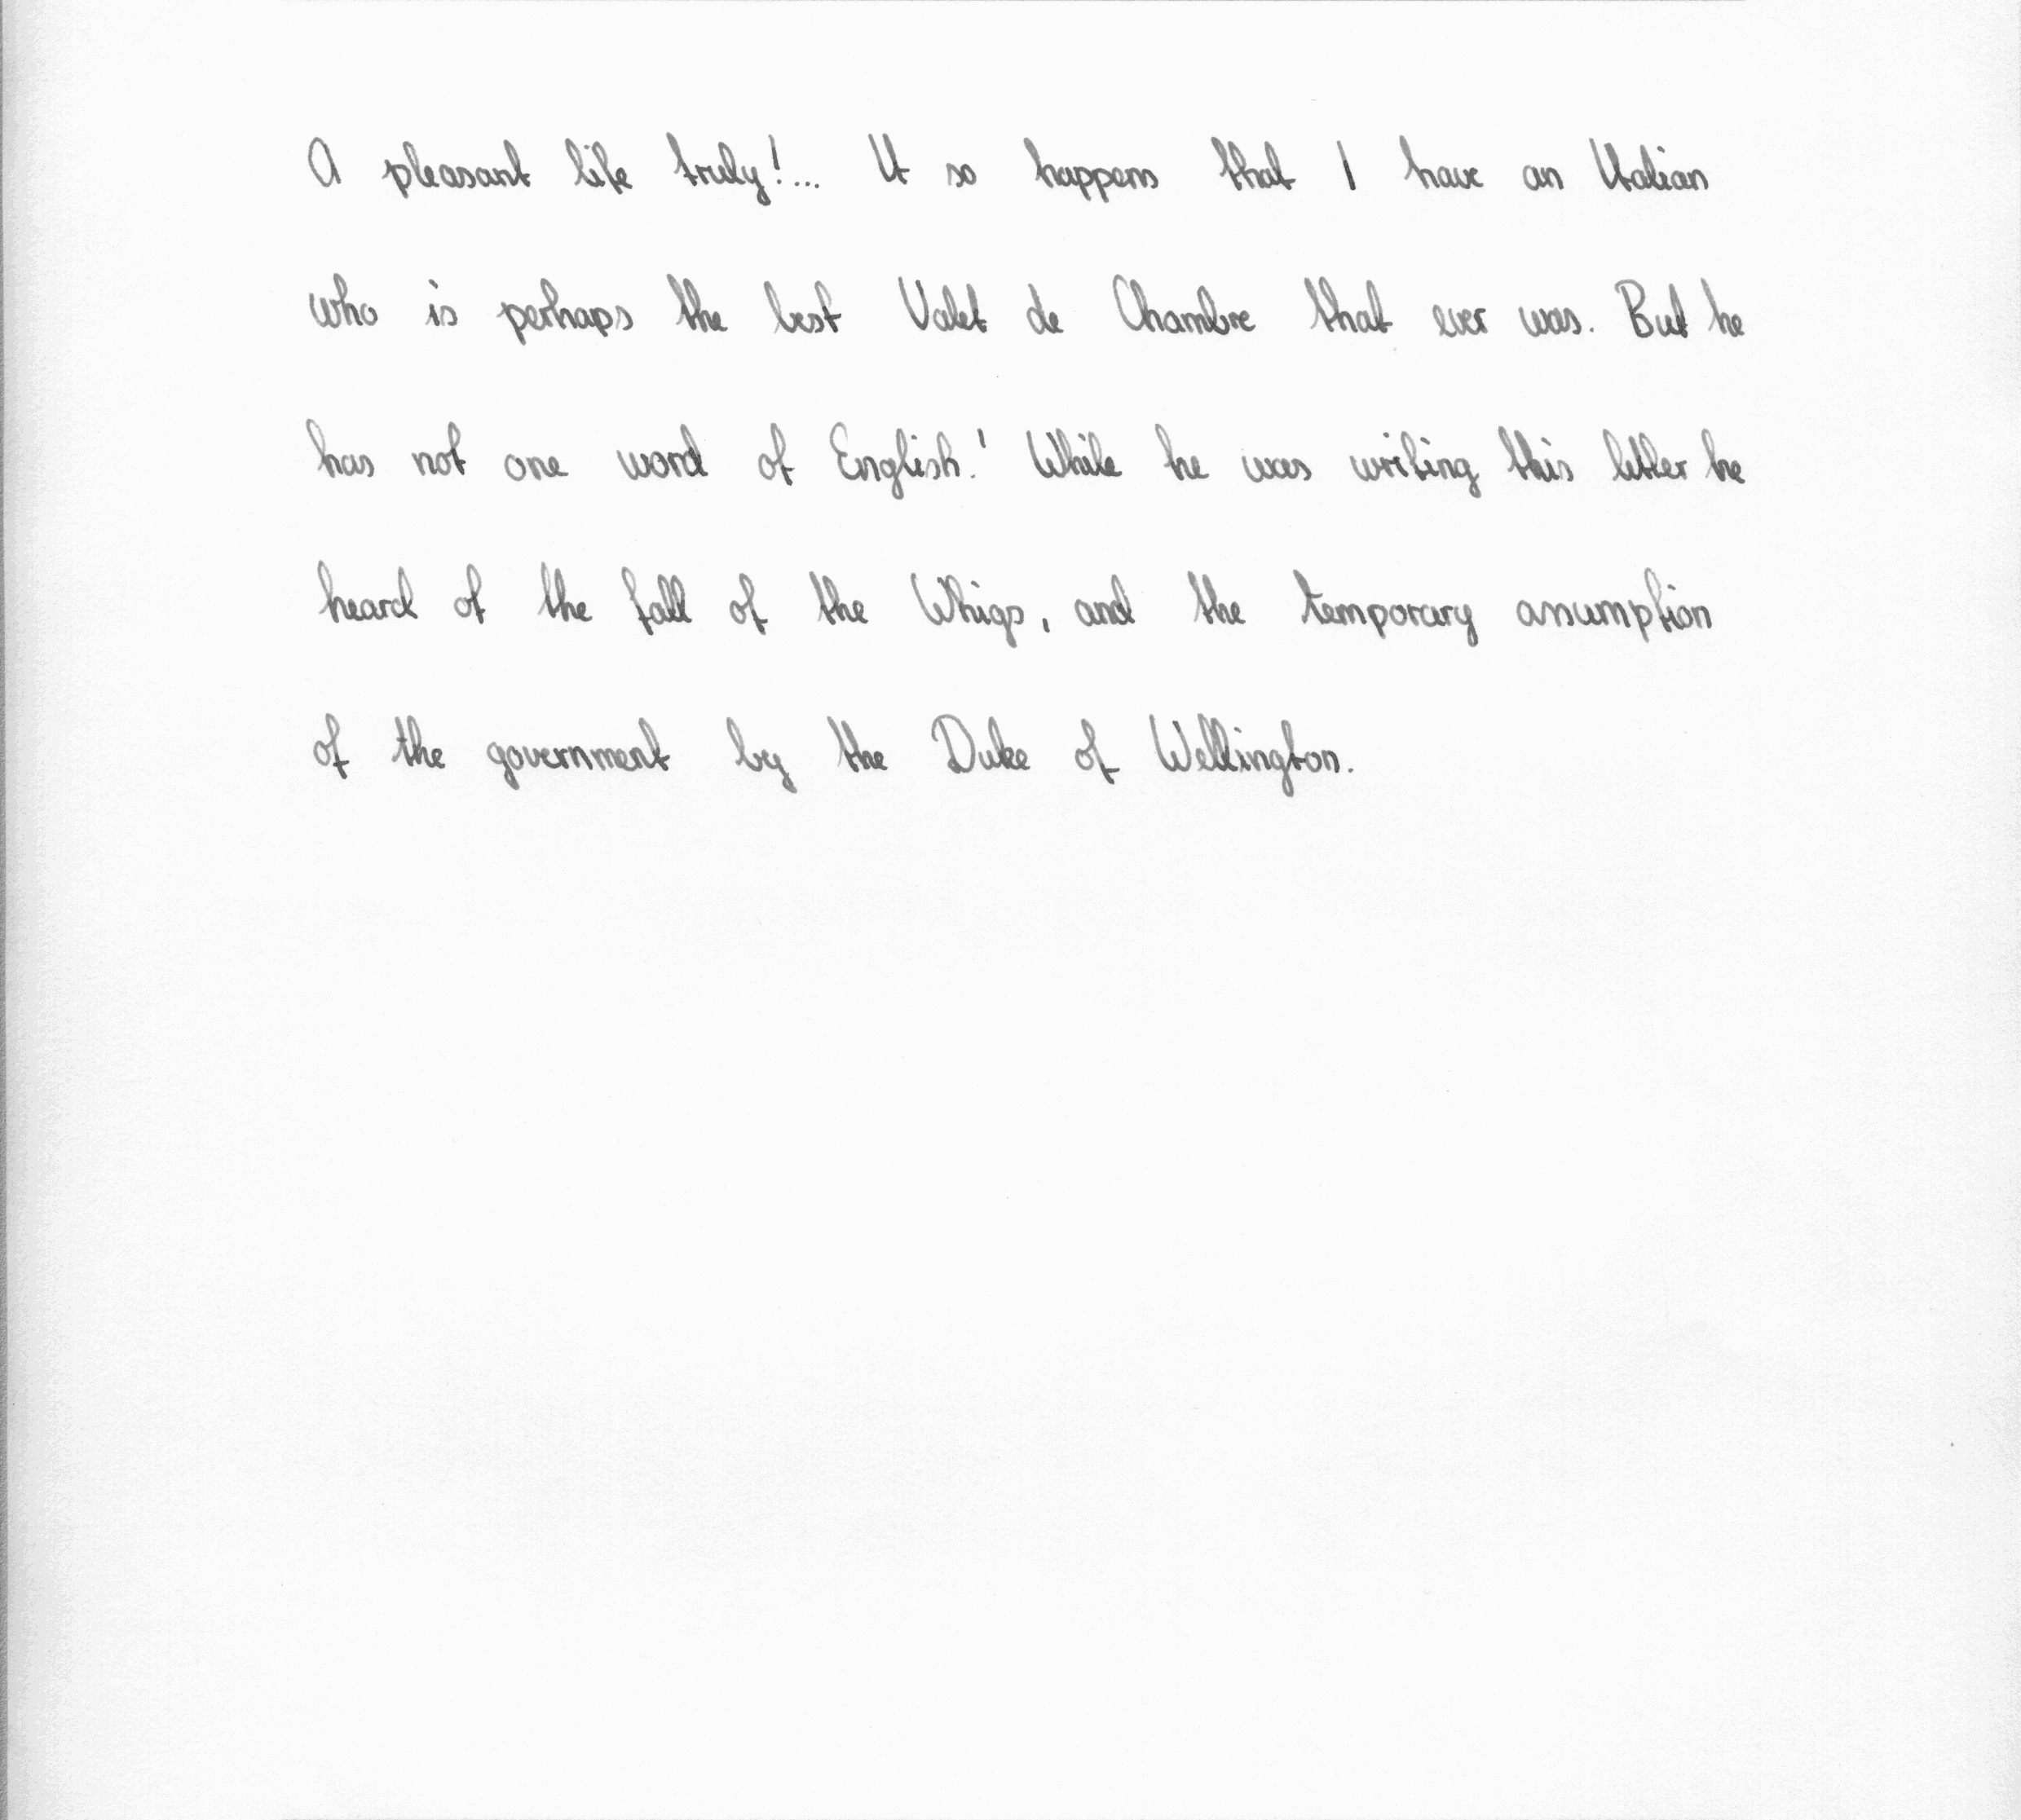 A pleasant life truly!... It so happens that I have an Italian
who is perhaps the best Valet de Chambre that ever was. But he
has not one word of English.' While he was writing this letter he
heard of the fall of the Whigs, and the temporary assumption
of the government by the Duke of Wellington.